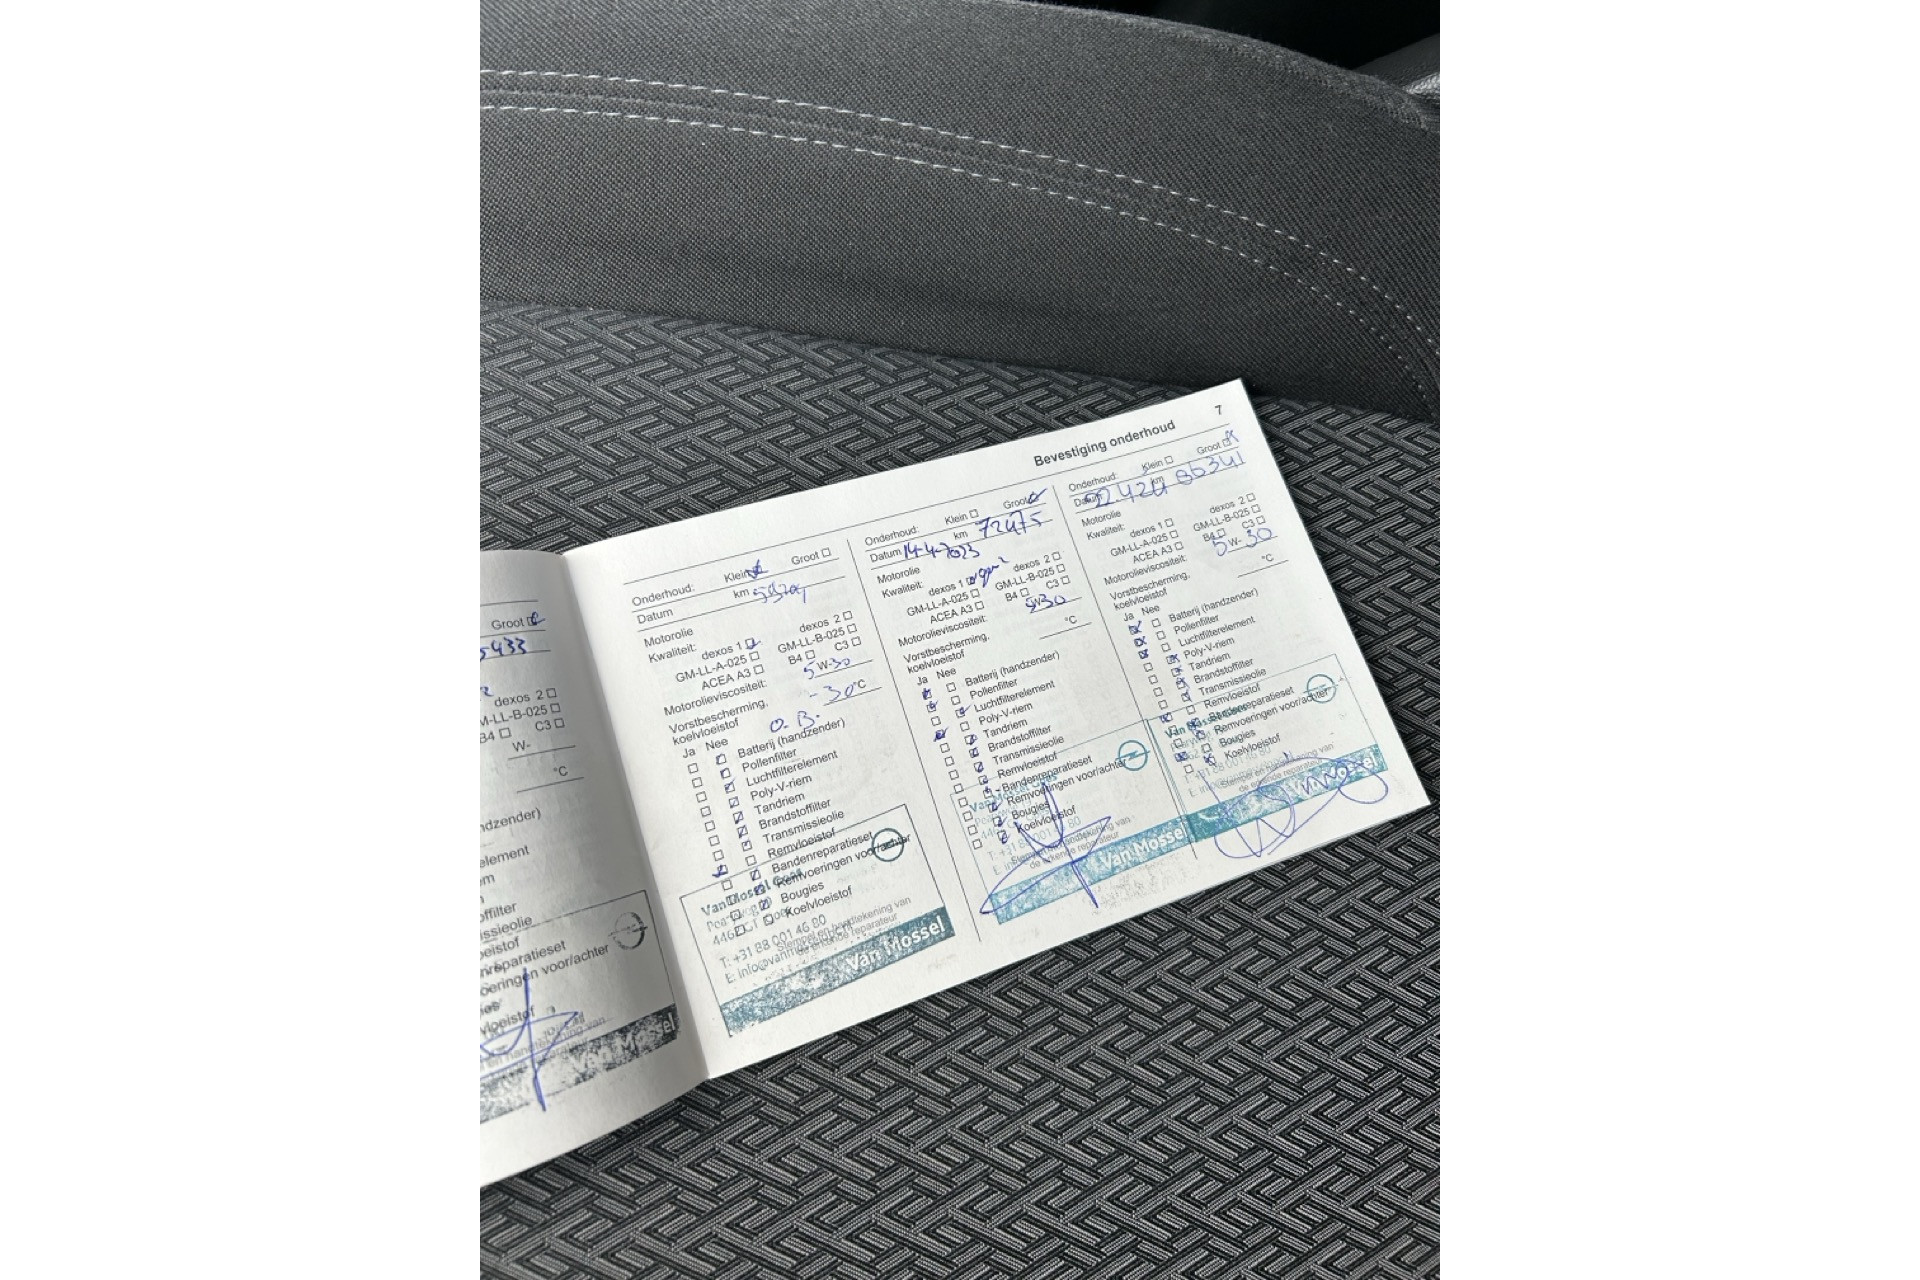 7
Bevestiging onderhoud
Groot
5433
dexos 2
M-LL-B-025
B4 C3
W-
°C
ndzender)
element
em
offilter
issieolie
eistof
nreparatieset
oeringen voor/achter
vloeistof
en handtekening van
Van Mossel
Onderhoud: Klein Groot
Datum km
Motorolie
Kwaliteit: dexos 1 dexos 2
GM-LL-A-025 GM-LL-B-025
ACEA A3 B4 C3
Motorolieviscositeit: 5W-30
Vorstbescherming, -30°C
koelvloeistof O.B.
Ja Nee
Batterij (handzender)
Pollenfilter
Luchtfilterelement
Poly-V-riem
Tandriem
Brandstoffilter
Transmissieolie
Remvloeistof
Bandenreparatieset
Remvoeringen voor/achter
Bougies
Koelvloeistof
Stempel en handtekening van
de erkende reparateur
Van Mossel Goes
T: +31 88 001 46 80
Van Mossel
Onderhoud: Klein Groot
Datum 14-4-2023 km 72475
Motorolie
Kwaliteit: dexos 1 dexos 2
GM-LL-A-025 GM-LL-B-025
ACEA A3 B4 C3
Motorolieviscositeit: 5W-30
Vorstbescherming, °C
koelvloeistof
Ja Nee
Batterij (handzender)
Pollenfilter
Luchtfilterelement
Poly-V-riem
Tandriem
Brandstoffilter
Transmissieolie
Remvloeistof
Bandenreparatieset
Remvoeringen voor/achter
Bougies
Koelvloeistof
Stempel en handtekening van
de erkende reparateur
Van Mossel Goes
T: +31 88 001 46 80
Van Mossel
Onderhoud: Klein Groot
Datum 22 4 24 km 86341
Motorolie
Kwaliteit: dexos 1 dexos 2
GM-LL-A-025 GM-LL-B-025
ACEA A3 B4 C3
Motorolieviscositeit: 5W-30
Vorstbescherming, °C
koelvloeistof
Ja Nee
Batterij (handzender)
Pollenfilter
Luchtfilterelement
Poly-V-riem
Tandriem
Brandstoffilter
Transmissieolie
Remvloeistof
Bandenreparatieset
Remvoeringen voor/achter
Bougies
Koelvloeistof
Stempel en handtekening van
de erkende reparateur
Van Mossel Goes
Van Mossel